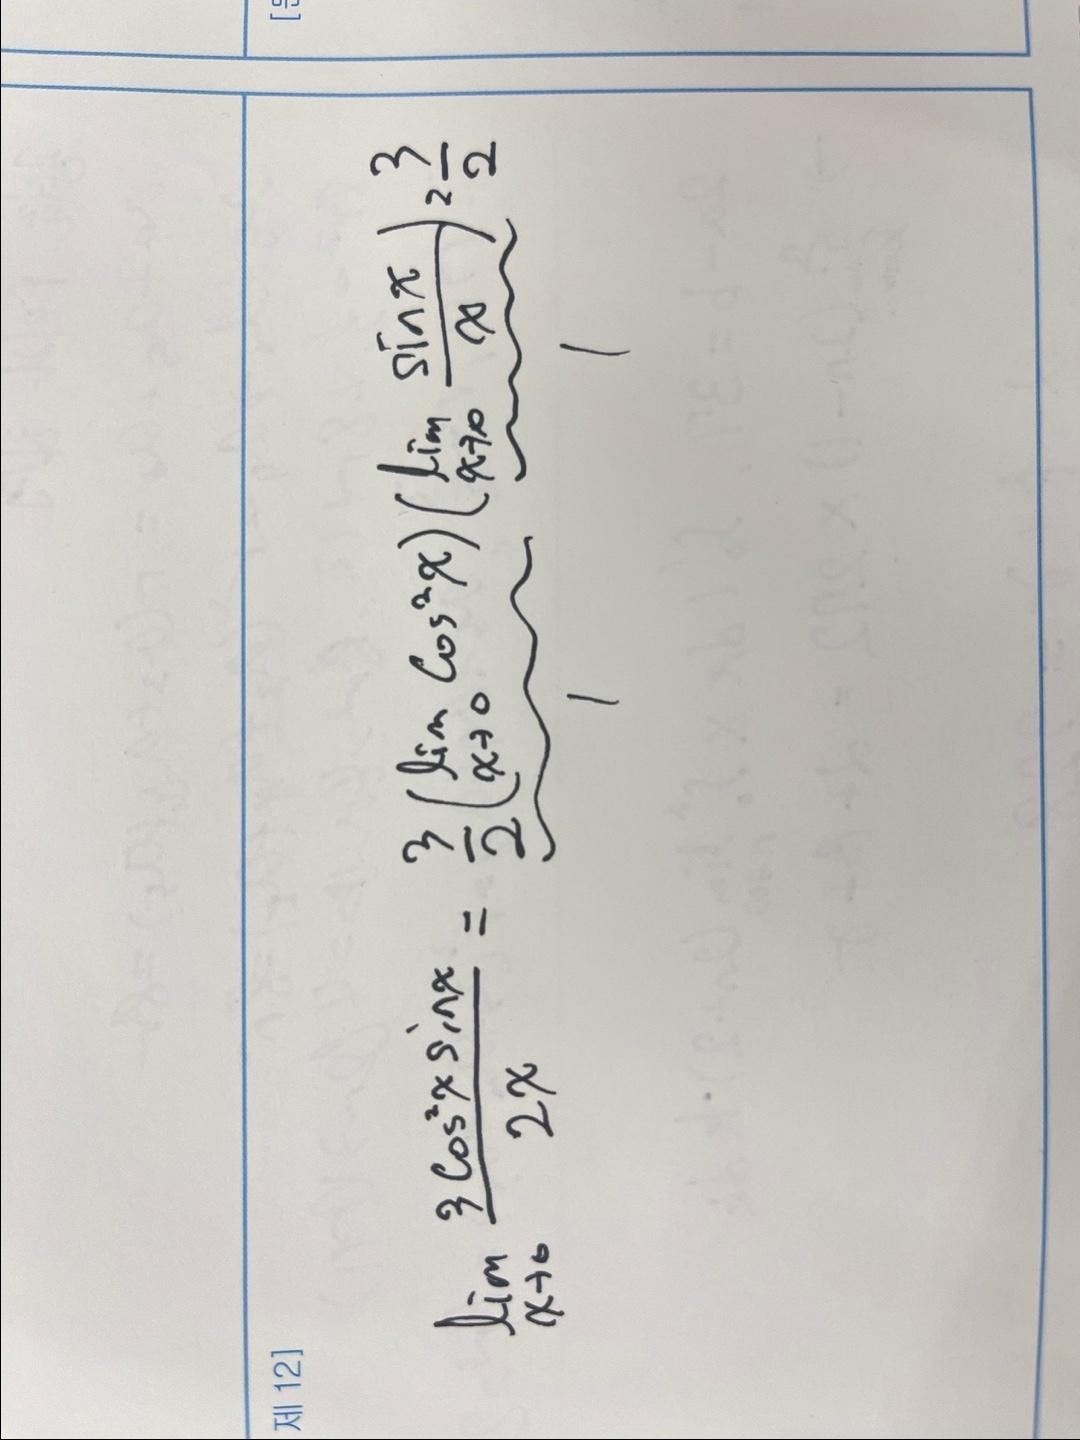 제 12]
lim x→0 3cos²x sinx / 2x = 3/2 (lim x→0 cos²x) (lim x→0 sinx / x) = 3/2
1 1